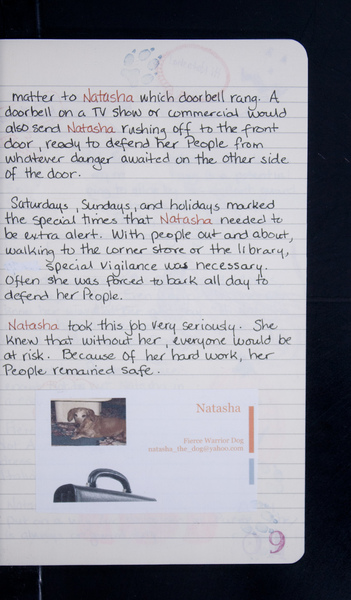 matter to Natasha which doorbell rang. A
doorbell on a TV show or commercial would
also send Natasha rushing off to the front
door, ready to defend her People from
whatever danger awaited on the other side
of the door.
Saturdays, Sundays, and holidays marked
the special times that Natasha needed to
be extra alert. With people out and about,
walking to the corner store or the library,
special vigilance was necessary.
Often she was forced to bark all day to
defend her People.
Natasha took this job very seriously. She
knew that without her, everyone would be
at risk. Because of her hard work, her
People remained safe.
Natasha
Fierce Warrior Dog
natasha_the_dog@yahoo.com
9